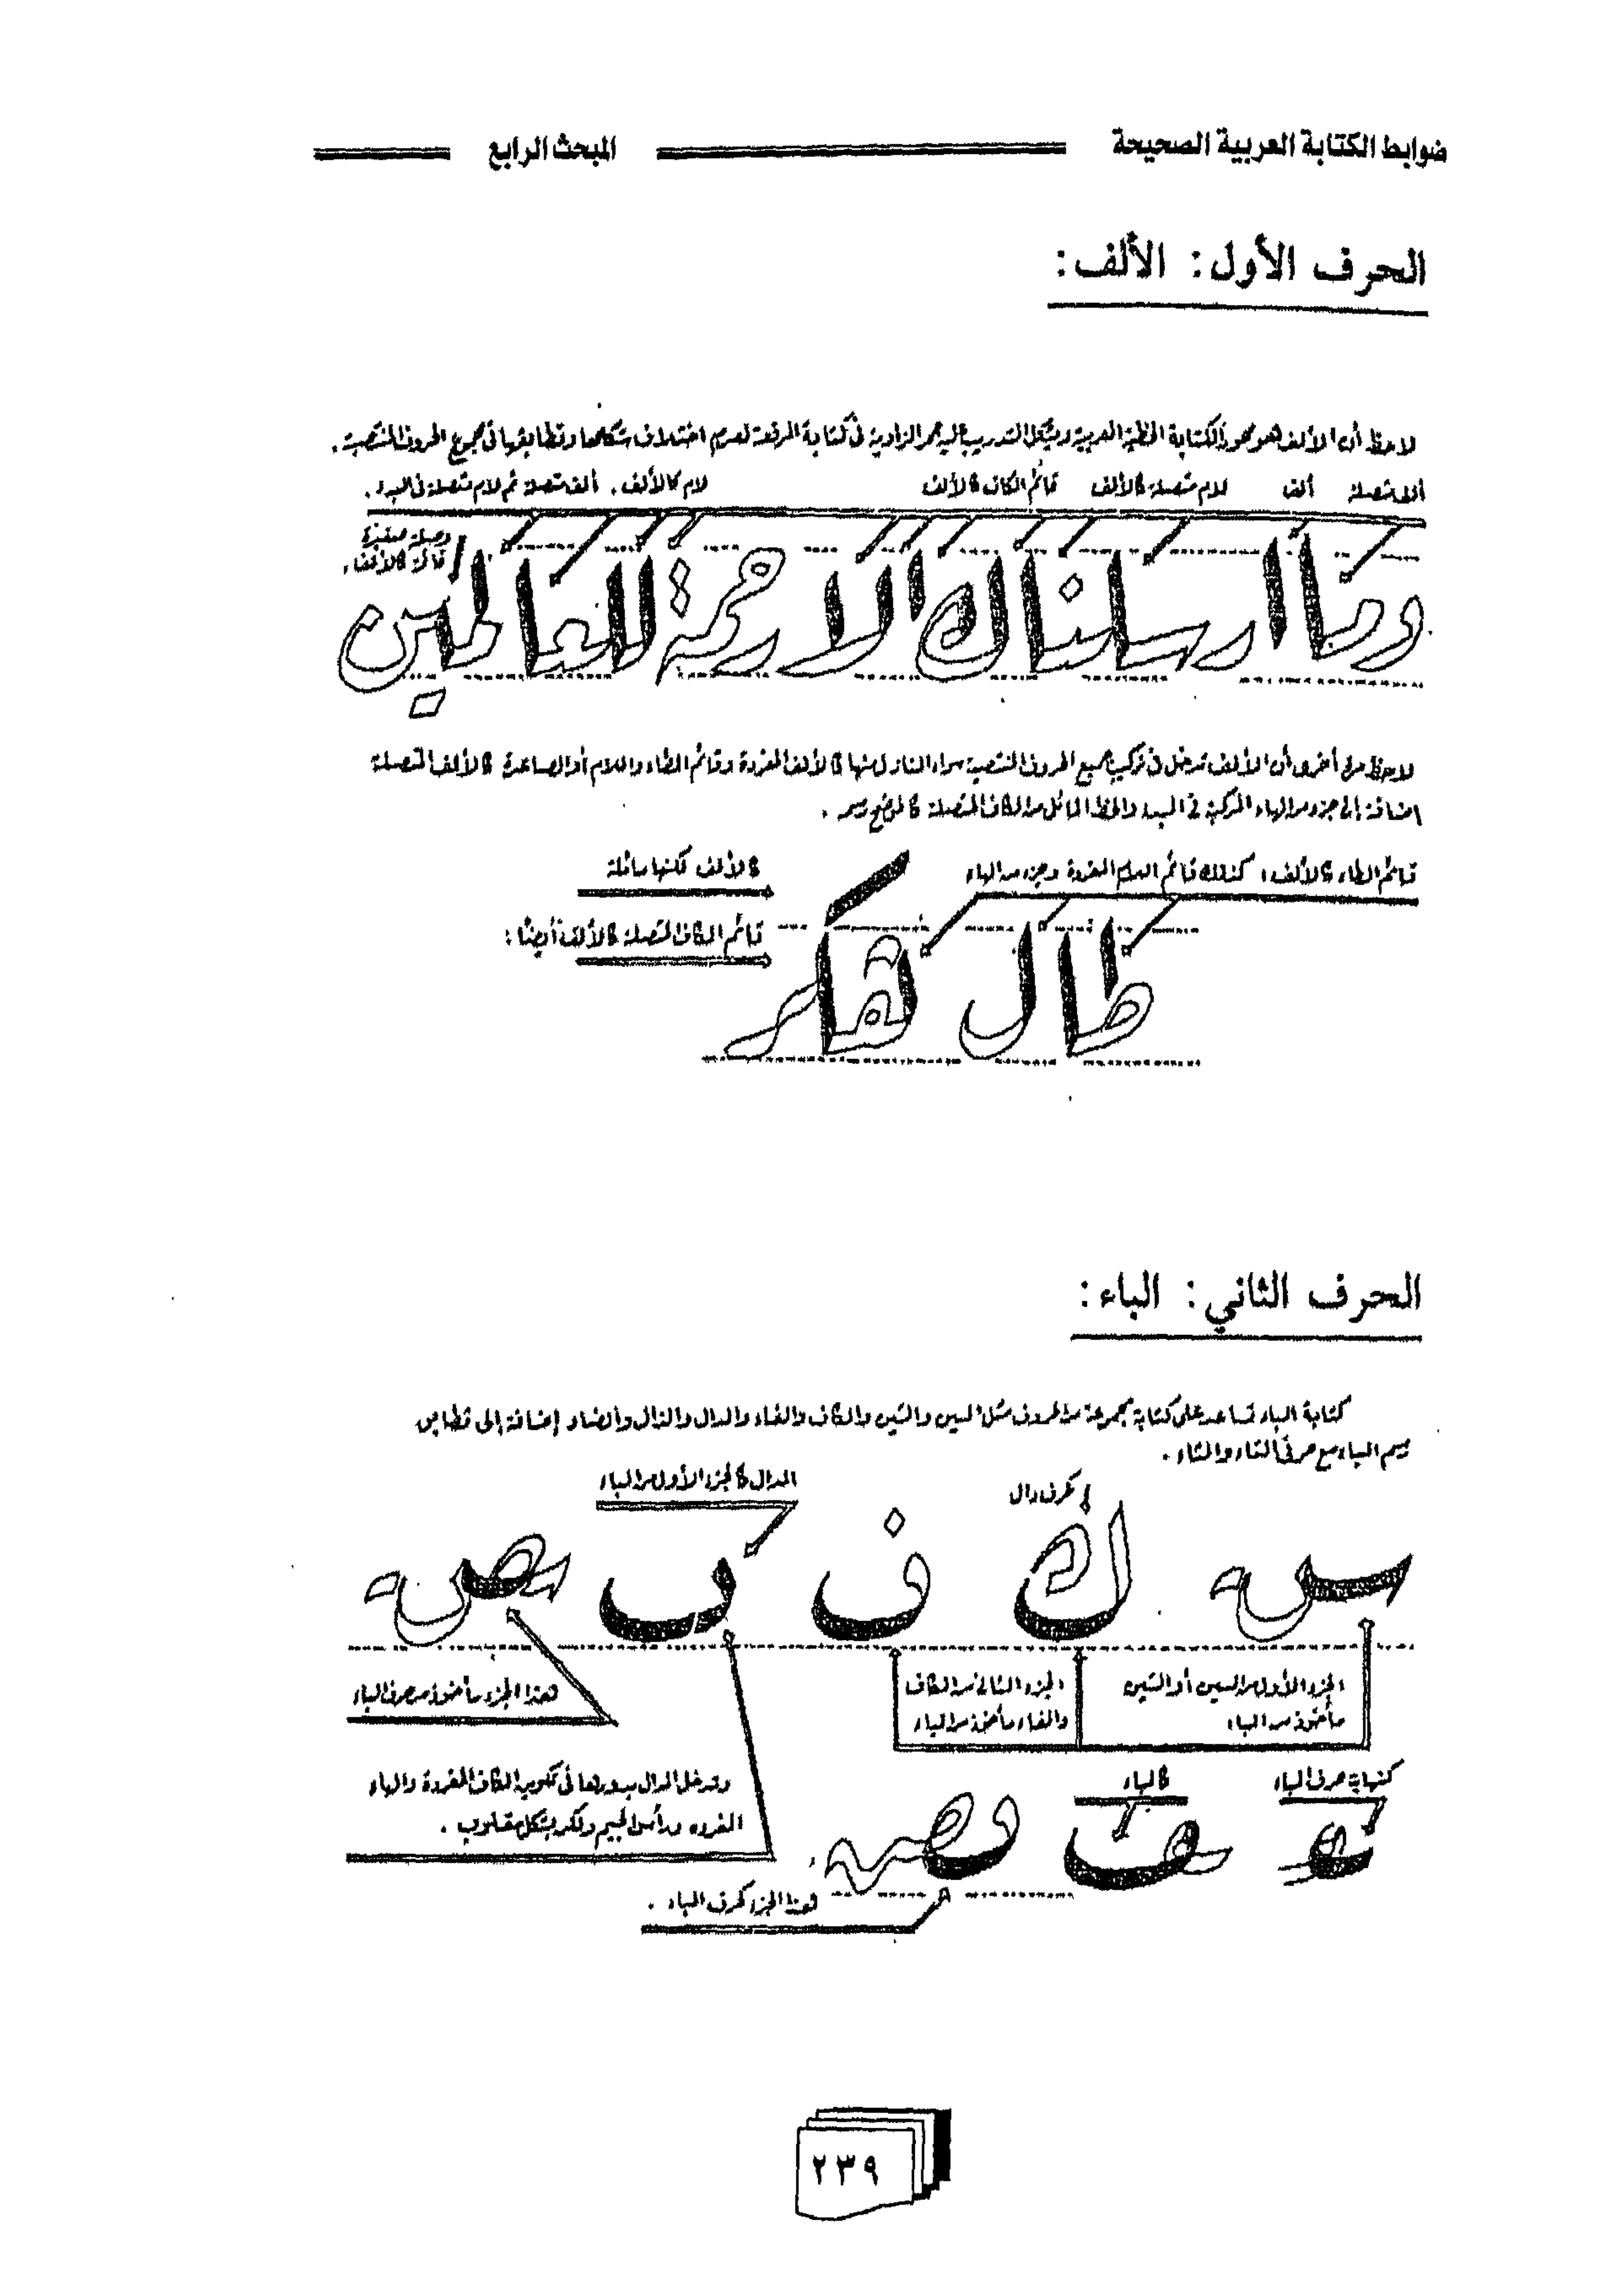 ضوابط الكتابة العربية الصحيحة
المبحث الرابع
الحرف الأول: الألف:
لاحظ أن الألف هو محور الكتابة الخطية العربية ويشكل التدريب عليه حجر الزاوية في كتابة الرقعة لعدم اختلاف شكلها وتطابقها في مجموع الحروف المنتصبة.
ألف متصلة ألف لام متصلة كالألف قائم الكاف كالألف لام كالألف. ألف متصلة ثم لام متصلة في البدء.
وصلة صغيرة
قائمة كالألف.
وما ارسلناك الا رحمة للعالمين
لاحظ مرة أخرى أن الألف تدخل في تركيب جميع الحروف المنتصبة سواء النازل منها كالألف المفردة وقائم الطاء واللام أو الصاعدة كالألف المتصلة
إضافة إلى جزء من الهاء المركبة في البدء والخط المائل من الكاف المتصلة كما موضح
قائم الطاء كالألف، كذلك قائم اللام المفردة وجزء من الهاء
كالألف لكنها مائلة
قائم الكاف المتصلة كالألف أيضًا:
طال
الحرف الثاني: الباء:
كتابة الباء تساعد على كتابة مجموعة من الحروف مثل السين والشين والكاف والفاء والدال والذال والصاد إضافة إلى تطابق
رسم الباء مع حرفي التاء والثاء.
كحرف دال
الدال كالجزء الأول من الباء
ك ف
الجزء الأول من السين أو الشين
مأخوذ من الباء
الجزء الثاني من الكاف
والفاء مأخوذ من الباء
هذا الجزء مأخوذ من حرف الباء
كنهاية حرف الباء
كالباء
وتدخل الدال بدورها في تكوين الكاف المفردة والهاء
المفردة ورأس الجيم ولكن بشكل مقلوب.
هذا الجزء كحرف الباء.
٢٣٩